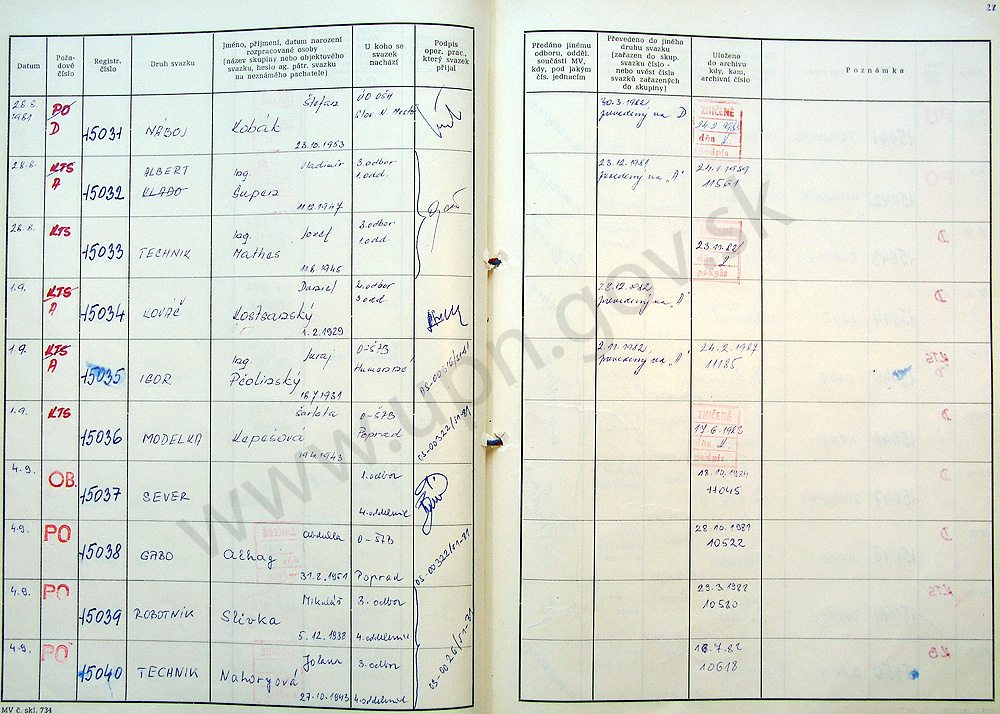 28
Datum
Požadové číslo
Registr. číslo
Druh svazku
Jméno, příjmení, datum narození rozpracované osoby (název skupiny nebo objektového svazku, heslo ag. pátr. svazku na neznámého pachatele)
U koho se svazek nachází
Podpis oper. prac., který svazek přijal
Předáno jinému odboru, odděl. součásti MV, kdy, pod jakým čís. jednacím
Převedeno do jiného druhu svazku (zařazen do skup. svazku číslo - nebo uvést čísla svazků zařazených do skupiny)
Uloženo do archivu kdy, kam, archivní číslo
Poznámka
28.8. 1981
PO D
15031
NÁBOJ
Štefan
Kobák
23.10.1953
30.3.1982
prevedený na D
ZNIČENÉ
dňa
podpis
28.8.
KTS A
15032
ALBERT
KLADO
Ing. Vladimír
Šuperz
11.12.1947
3. odbor
1. odd.
23.12.1981
prevedený na "A"
24.1.1989
11561
28.8.
KTS
15033
TECHNIK
Ing. Jozef
Mathes
11.8.1945
3. odbor
1. odd.
ZNIČENÉ
23.11.82
dňa
podpis
1.9.
KTS A
15034
KOVÁČ
Daniel
1.2.1929
2. odbor
3. odd.
prevedený na "A"
1.9.
KTS A
15035
IGOR
Ing. Juraj
Pčolinský
18.7.1931
O-ŠTB
Humenné
2.11.1982
prevedený na "A"
24.2.1987
11185
1.9.
KTS
15036
MODELKA
Šarlota
Lepešová
19.4.1943
O-ŠTB
Poprad
OS-00322/51-81
ZNIČENÉ
17.6.1983
dňa
podpis
4.9.
OB.
15037
SEVER
1. odbor
4. oddelenie
18.10.1984
11045
4.9.
PO
15038
GABO
Abdulla
Alhag
31.8.1951
O-ŠTB
Poprad
OS-00322/51-81
28.10.1981
10522
4.9.
PO
15039
ROBOTNÍK
Mikuláš
Slivka
5.12.1938
3. odbor
4. oddelenie
29.3.1982
10580
4.9.
PO
15040
TECHNIK
Jolana
Nahoryová
27.10.1943
3. odbor
4. oddelenie
16.7.82
10618
MV č. skl. 734
www.upn.gov.sk